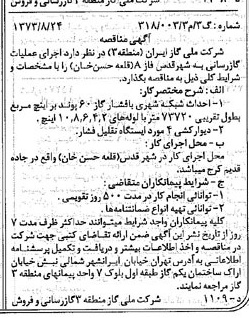 شماره: گ۳/م۳/۳-۰۰/۳۱۸ ۱۳۷۳/۸/۲۴
آگهی مناقصه
شرکت ملی گاز ایران (منطقه۳) در نظر دارد اجرای عملیات
گازرسانی به شهرقدس فاز ۸ (قلعه حسن‌خان) را با مشخصات و
شرایط کلی ذیل به مناقصه بگذارد.
الف: شرح مختصر کار:
۱- احداث شبکه شهری بافشار گاز ۶۰ پوند بر اینچ مربع
بطول تقریبی ۷۳۷۲۰ متر با لوله‌های ۲،۴،۶،۸،۱۰ اینچ
۲- دیوارکشی ۴ مورد ایستگاه تقلیل فشار.
ب- محل اجرای کار:
محل اجرای کار در شهر قدس (قلعه حسن خان) واقع در جاده
قدیم کرج میباشد.
ج- شرایط پیمانکاران متقاضی:
۱- توانائی انجام کار در مدت ۵۰۰ روز تقویمی.
۲- توانائی تهیه انواع ضمانتنامه‌ها.
کلیه پیمانکاران واجد شرایط میتوانند حداکثر ظرف مدت ۷
روز از تاریخ نشر این آگهی ضمن ارائه تقاضای کتبی جهت شرکت
در مناقصه و اخذ اطلاعات بیشتر و دریافت و تکمیل پرسشنامه
اطلاعاتی به آدرس تهران خیابان ایرانشهر شمالی نبش خیابان
اراک ساختمان یکم گاز طبقه اول بلوک ۷ واحد پیمانهای منطقه ۳
گاز مراجعه نمایند.
۱۱۰۹-۵ شرکت ملی گاز منطقه ۳ گازرسانی و فروش